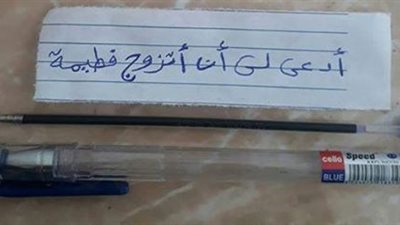 أدعى لى أنا أتزوج فطيمة
cello Speed
BLUE